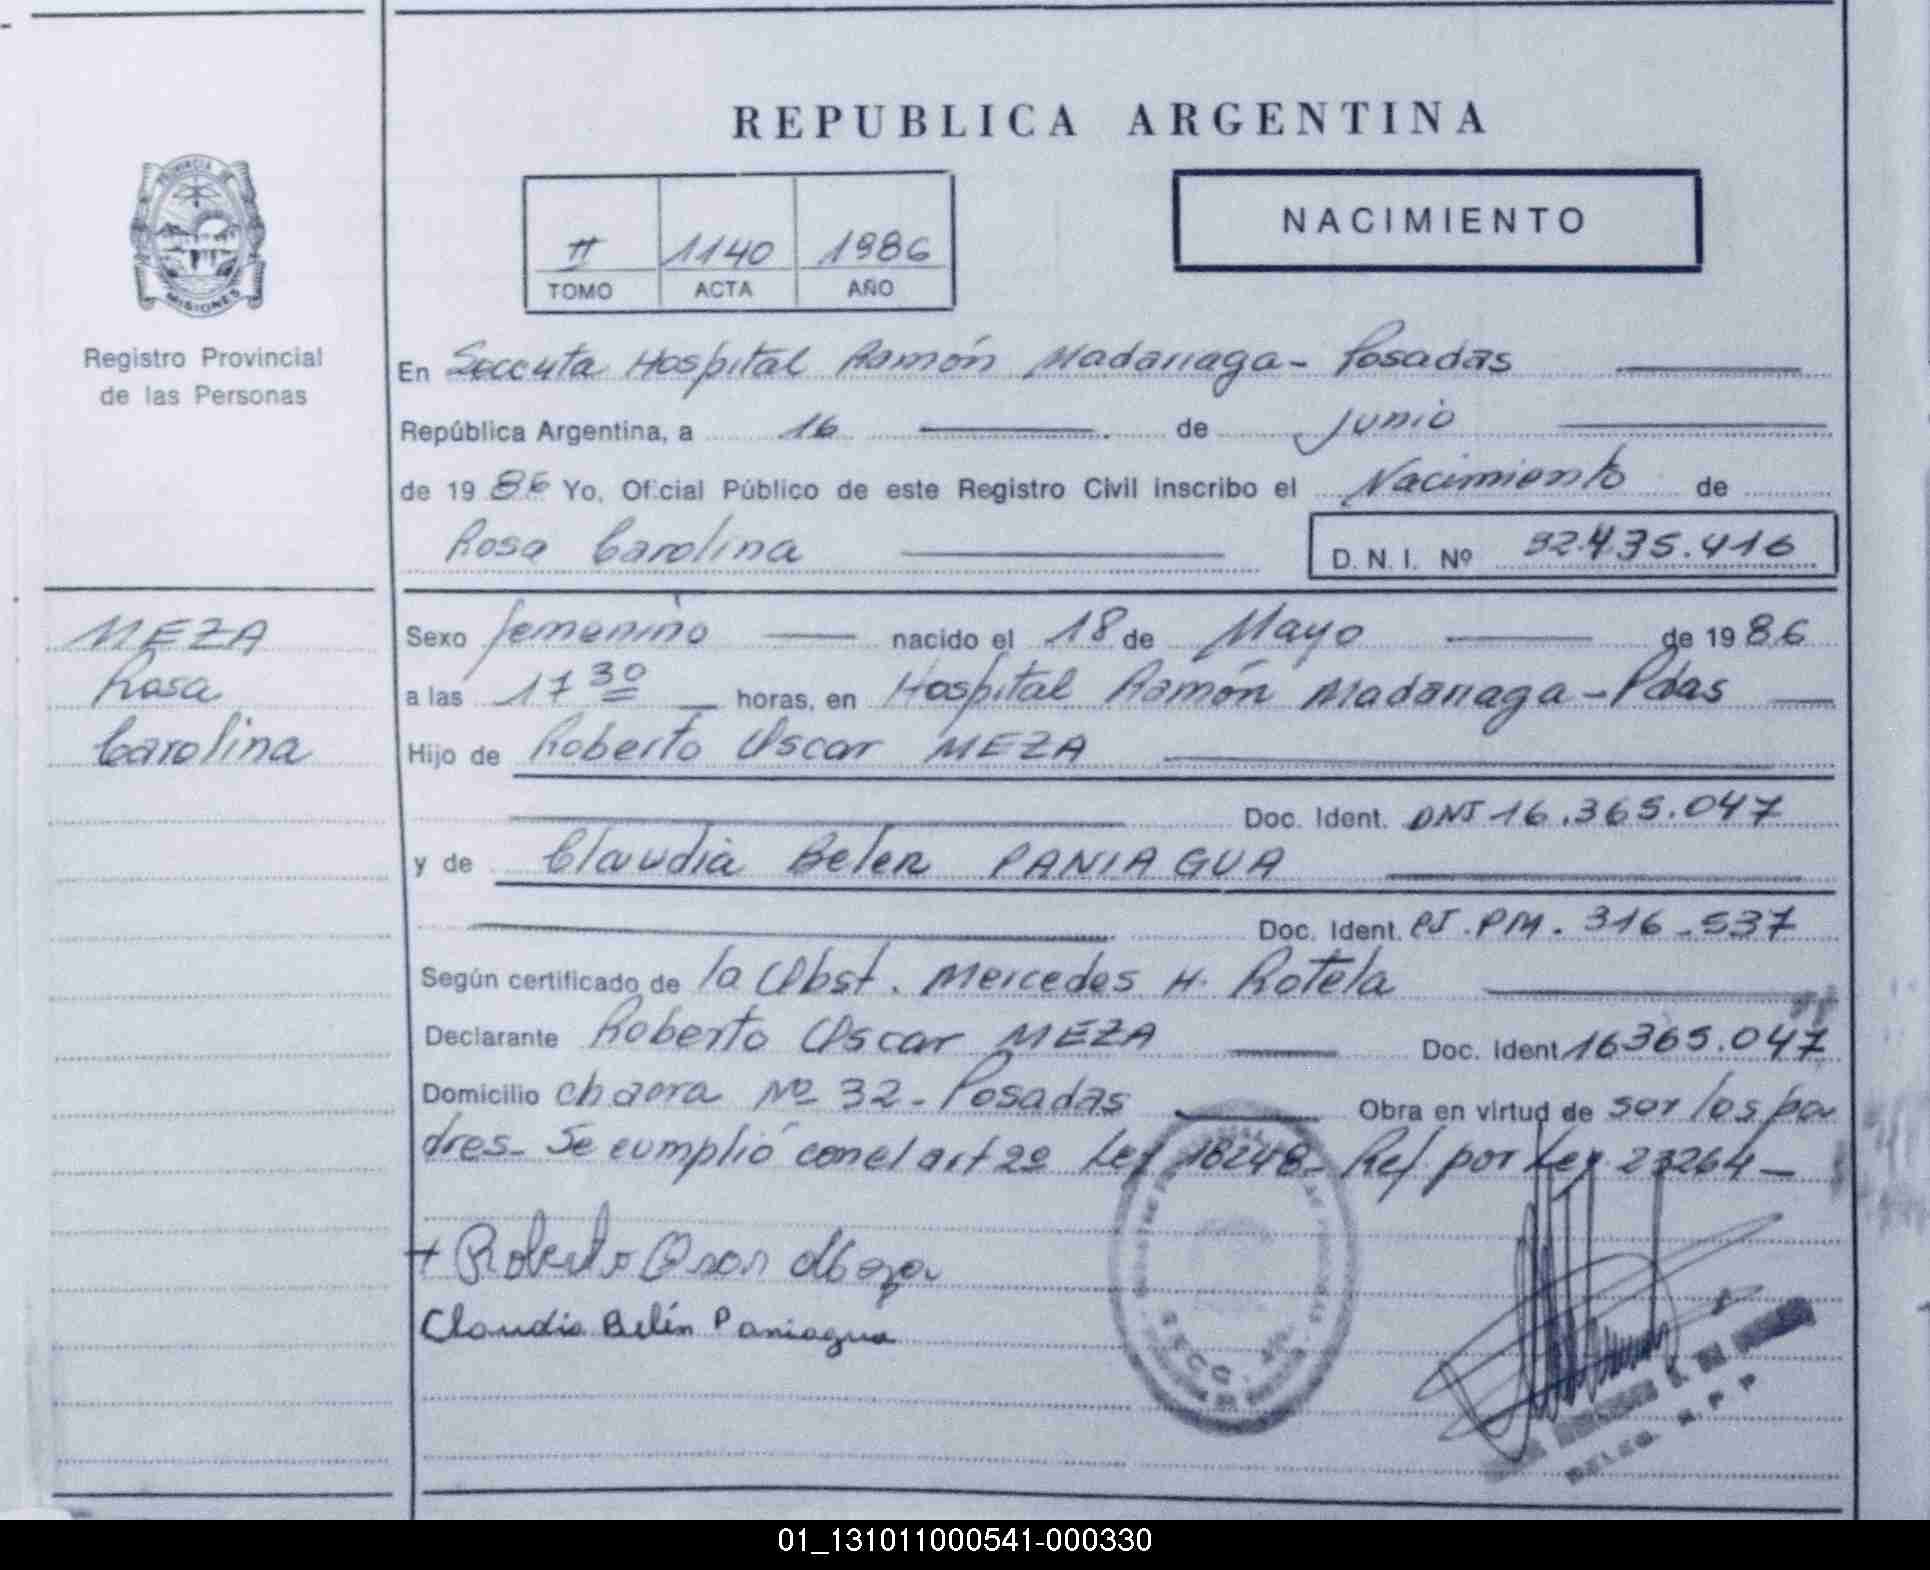 REPUBLICA ARGENTINA
PROVINCIA DE
MISIONES
Registro Provincial
de las Personas
II 1140 1986
TOMO ACTA AÑO
NACIMIENTO
En Seccuta Hospital Ramón Madariaga - Posadas
República Argentina, a 16 de Junio
de 1986 Yo, Oficial Público de este Registro Civil inscribo el Nacimiento de
Rosa Carolina D. N. I. Nº 32.435.416
MEZA
Rosa
Carolina
Sexo femenino nacido el 18 de Mayo de 1986
a las 17 30 horas, en Hospital Ramón Madariaga - Pdas
Hijo de Roberto Oscar MEZA
Doc. Ident. DNI 16.365.047
y de Claudia Belen PANIAGUA
Doc. Ident. CI. PM. 316.537
Según certificado de la Obst. Mercedes H. Rotela
Declarante Roberto Oscar MEZA Doc. Ident 16365.047
Domicilio chacra Nº 32 - Posadas Obra en virtud de ser los pa
dres - Se cumplió con el art 2º Ley 18248 - Ref por Ley 23264 -
+ Roberto Oscar Meza
Claudia Belén Paniagua
SECC.
DELEG. R. P. P.
01_131011000541-000330